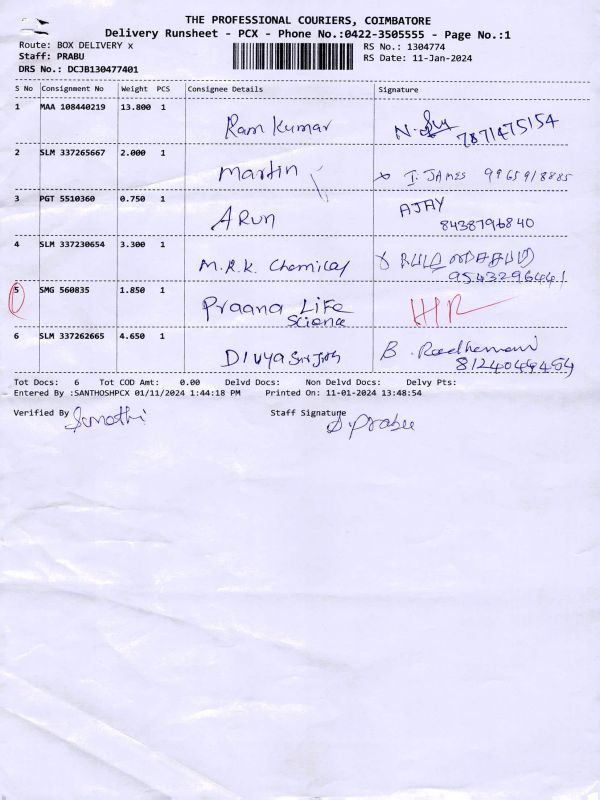 THE PROFESSIONAL COURIERS, COIMBATORE
Delivery Runsheet - PCX - Phone No.:0422-3505555 - Page No.:1
Route: BOX DELIVERY x
RS No.: 1304774
Staff: PRABU
RS Date: 11-Jan-2024
DRS No.: DCJB130477401
S No Consignment No Weight PCS Consignee Details Signature
1 MAA 108440219 13.800 1 Ram Kumar N. 7871475154
2 SLM 337265667 2.000 1 Martin I. JAMES 9965918885
3 PGT 5510360 0.750 1 ARUN AJAY
8438796840
4 SLM 337230654 3.300 1 M.R.K. Chemical
9543296441
5 SMG 560835 1.850 1 Praana Life
Science
6 SLM 337262665 4.650 1 Divya B. Radhamani
Tot Docs: 6 Tot COD Amt: 0.00 Delvd Docs: Non Delvd Docs: Delvy Pts:
Entered By :SANTHOSHPCX 01/11/2024 1:44:18 PM Printed On: 11-01-2024 13:48:54
Verified By Sumathi Staff Signature D. Prabu